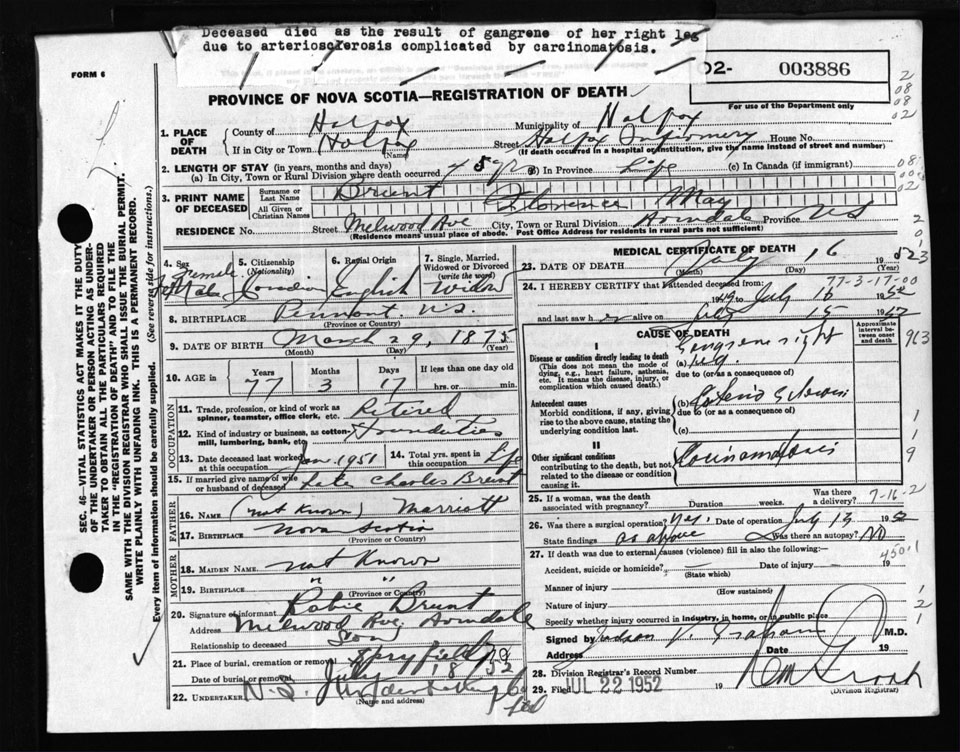 Deceased died as the result of gangrene of her right leg
due to arteriosclerosis complicated by carcinomatosis.
FORM 6
02- 003886
For use of the Department only
PROVINCE OF NOVA SCOTIA—REGISTRATION OF DEATH
SEC. 46—VITAL STATISTICS ACT MAKES IT THE DUTY
OF THE UNDERTAKER OR PERSON ACTING AS UNDER-
TAKER TO OBTAIN ALL THE PARTICULARS REQUIRED
IN THE "REGISTRATION OF DEATH" AND TO FILE THE
SAME WITH THE DIVISION REGISTRAR WHO SHALL ISSUE THE BURIAL PERMIT.
WRITE PLAINLY WITH UNFADING INK. THIS IS A PERMANENT RECORD.
Every item of information should be carefully supplied. (See reverse side for instructions.)
1. PLACE OF DEATH County of Halifax Municipality of Halifax
If in City or Town Halifax (Name) Street Halifax Infirmary House No.
(If death occurred in a hospital or institution, give the name instead of street and number)
2. LENGTH OF STAY (in years, months and days)
(a) In City, Town or Rural Division where death occurred (b) In Province Life (c) In Canada (if immigrant)
3. PRINT NAME OF DECEASED Surname or Last Name Brunt
All Given or Christian Names Florence May
RESIDENCE No. Street Melwood Ave City, Town or Rural Division Armdale Province N.S
(Residence means usual place of abode. Post Office Address for residents in rural parts not sufficient)
4. Sex Female 5. Citizenship (Nationality) Canadian 6. Racial Origin English 7. Single, Married, Widowed or Divorced (write the word) Widow
8. BIRTHPLACE N.S. (Province or Country)
9. DATE OF BIRTH March 29, 1875 (Month) (Day) (Year)
10. AGE in Years 77 Months 3 Days 17 If less than one day old hrs. or min.
OCCUPATION
11. Trade, profession, or kind of work as spinner, teamster, office clerk, etc. Retired
12. Kind of industry or business, as cotton-mill, lumbering, bank, etc.
13. Date deceased last worked at this occupation Jan 1951 14. Total yrs. spent in this occupation Life
15. If married give name of wife or husband of deceased Late Charles Brunt
FATHER
16. Name (not known) Marriott
17. Birthplace Nova Scotia (Province or Country)
MOTHER
18. MAIDEN NAME not Known
19. BIRTHPLACE " " (Province or Country)
20. Signature of informant Robie Brunt
Address Melwood Ave. Armdale
Relationship to deceased Son
21. Place of burial, cremation or removal Spryfield
Date of burial or removal July 18 1952
22. UNDERTAKER N.S. Undertaking Co Ltd (Name and address)
MEDICAL CERTIFICATE OF DEATH
23. DATE OF DEATH July 16 1952 (Month) (Day) (Year)
77-3-17-00
24. I HEREBY CERTIFY that I attended deceased from
19 to July 16 1952
and last saw her alive on July 15 1952
CAUSE OF DEATH
Approximate interval between onset and death
I
Disease or condition directly leading to death
(This does not mean the mode of dying, e.g., heart failure, asthenia, etc. It means the disease, injury, or complication which caused death.)
(a) Gangrene right leg
due to (or as a consequence of)
Antecedent causes
Morbid conditions, if any, giving rise to the above cause, stating the underlying condition last.
(b) Arterio Sclerosis
due to (or as a consequence of)
(c)
II
Other significant conditions
contributing to the death, but not related to the disease or condition causing it.
Carcinomatosis
25. If a woman, was the death associated with pregnancy? Duration weeks. Was there a delivery? 7-16-2
26. Was there a surgical operation? Yes. Date of operation July 13 1952
State findings as above Was there an autopsy? No
27. If death was due to external causes (violence) fill in also the following:—
4501
Accident, suicide or homicide? (State which) Date of injury 19
Manner of injury (How sustained)
Nature of injury
Specify whether injury occurred in industry, in home, or in public place
Signed by Graham M.D.
Address Date 19
28. Division Registrar's Record Number
29. Filed JUL 22 1952 19 (Division Registrar)